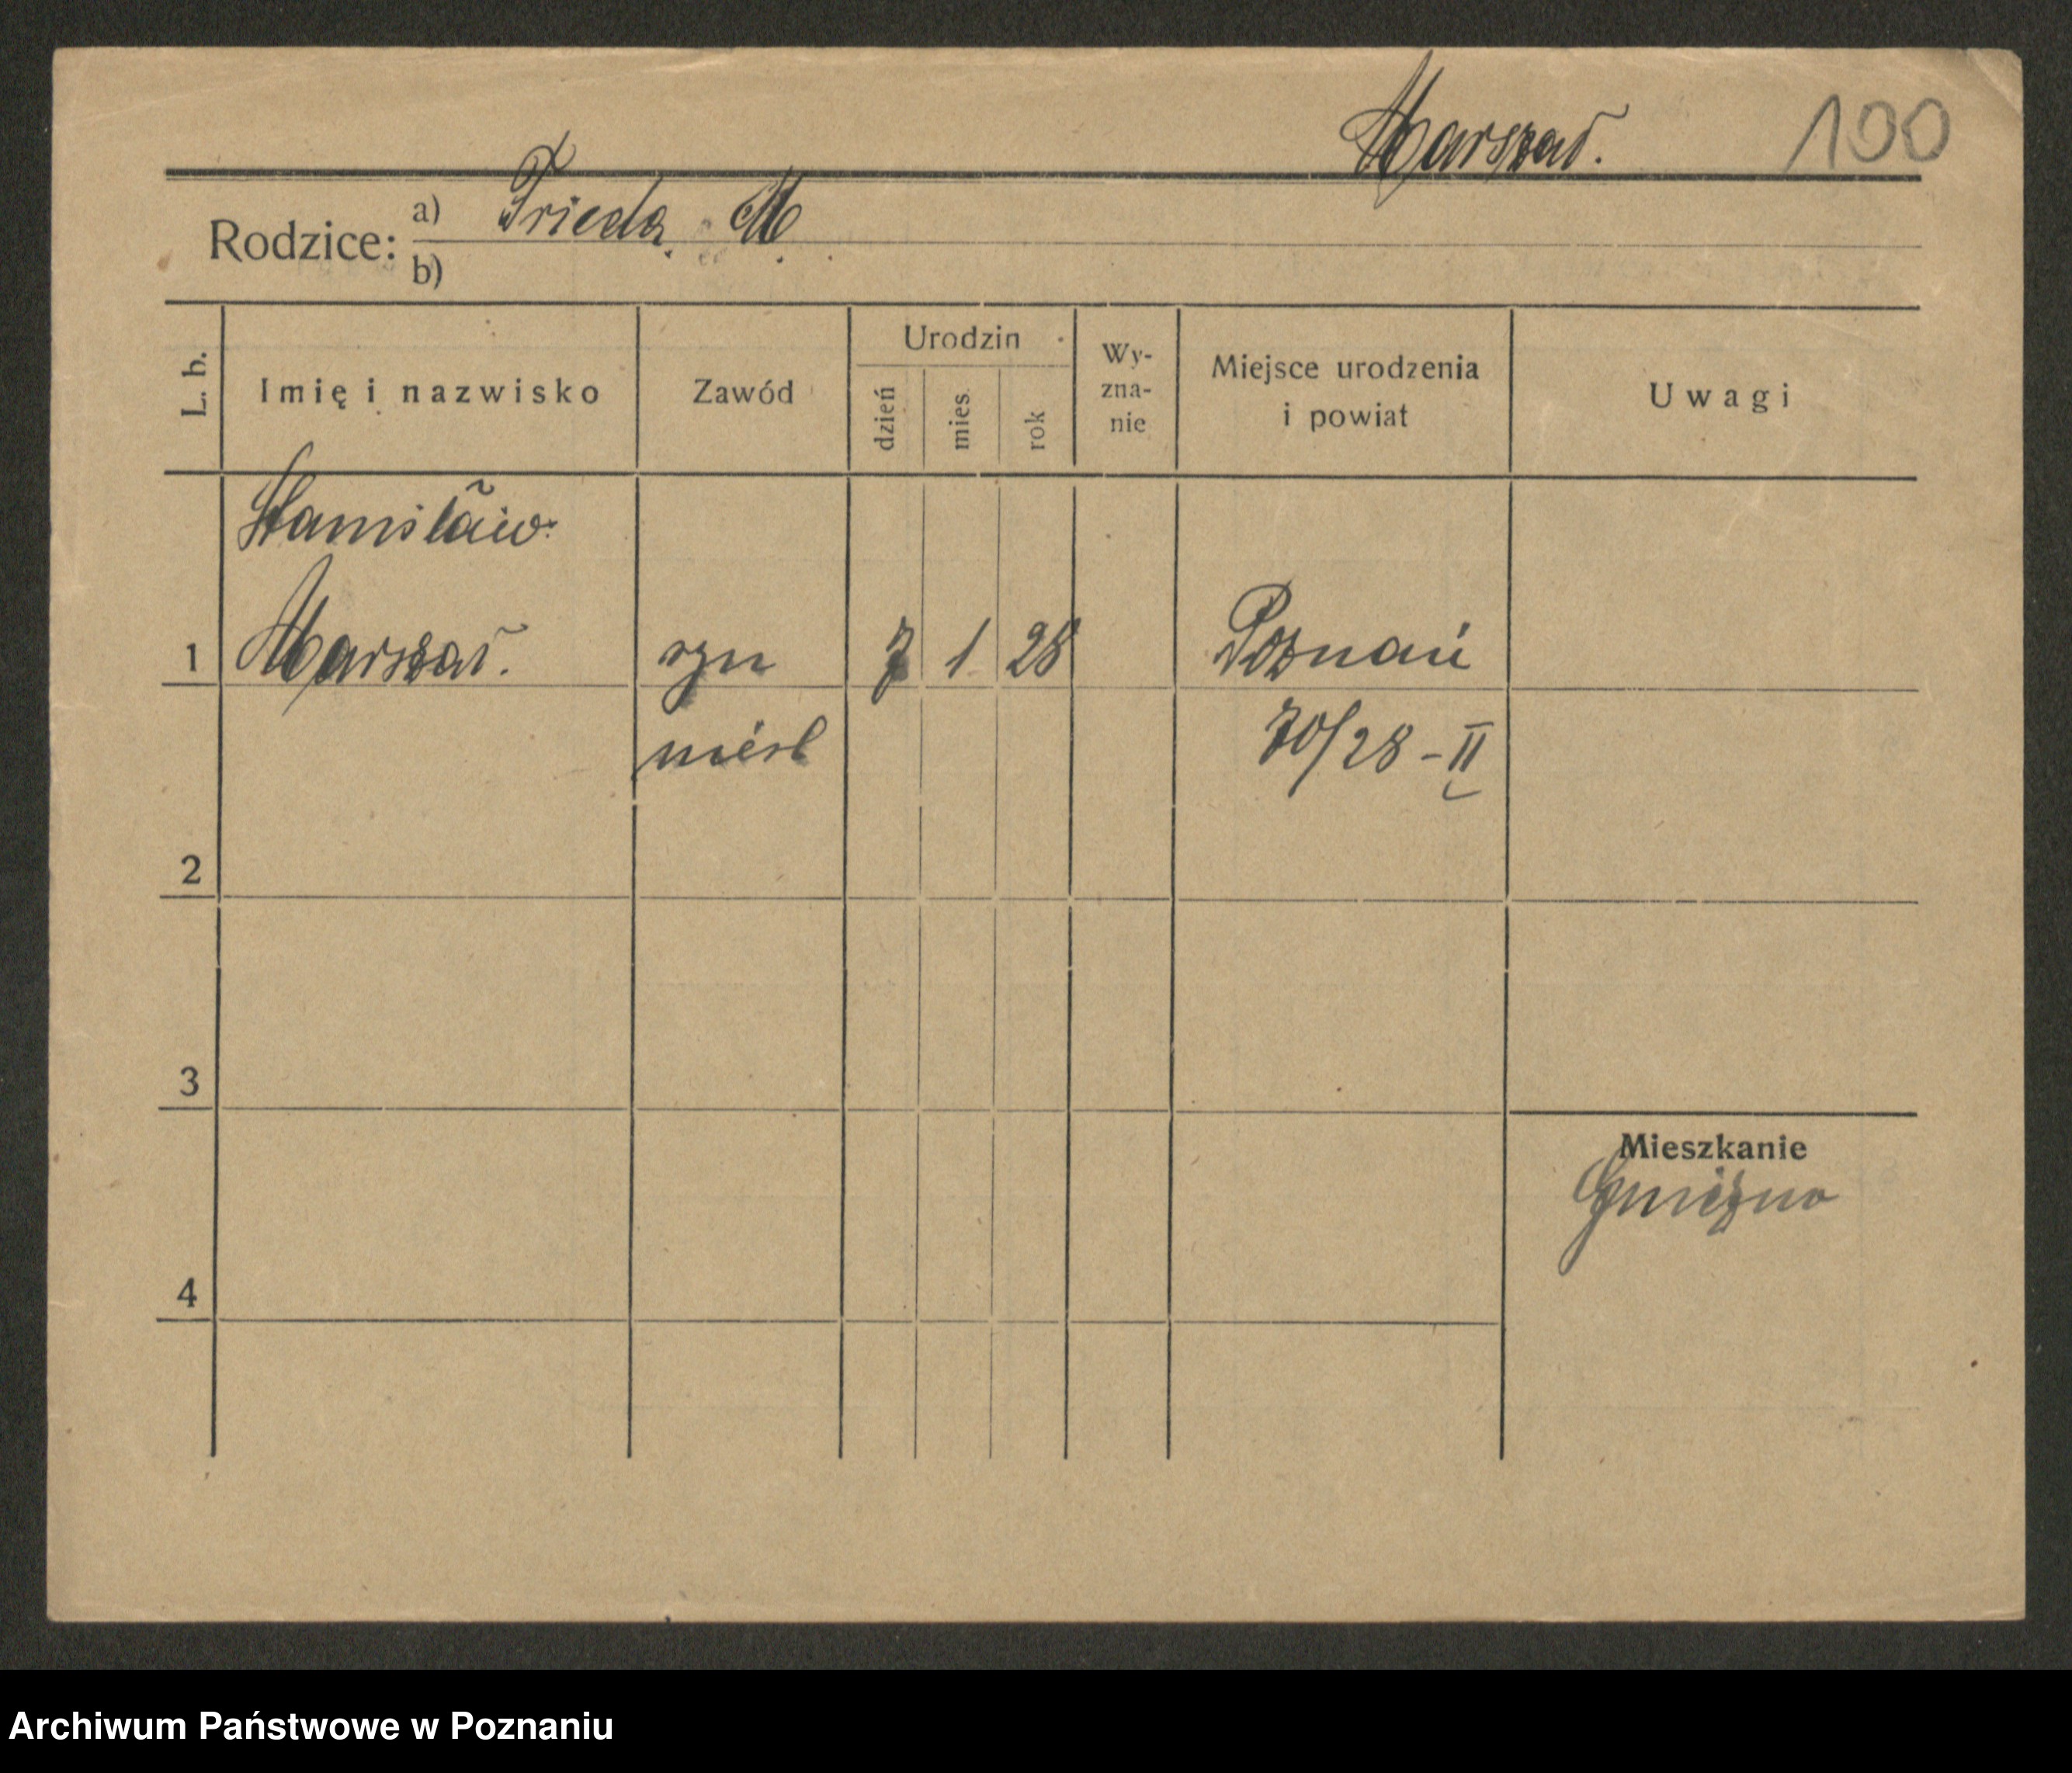 Marszał.
100
Rodzice:
a) Frieda M.
b)
L. b.
Imię i nazwisko
Zawód
Urodzin
dzień
mies.
rok
Wy-
zna-
nie
Miejsce urodzenia
i powiat
Uwagi
Stanisław
1 Marszał. syn 7 1 28 Poznań
nieśl 70/28 - II
2
3
Mieszkanie
Gniezno
4
Archiwum Państwowe w Poznaniu